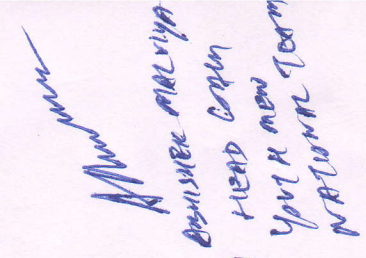 ABHISHEK MALVIYA
HEAD COACH
YOUTH MEN
NATIONAL TEAM